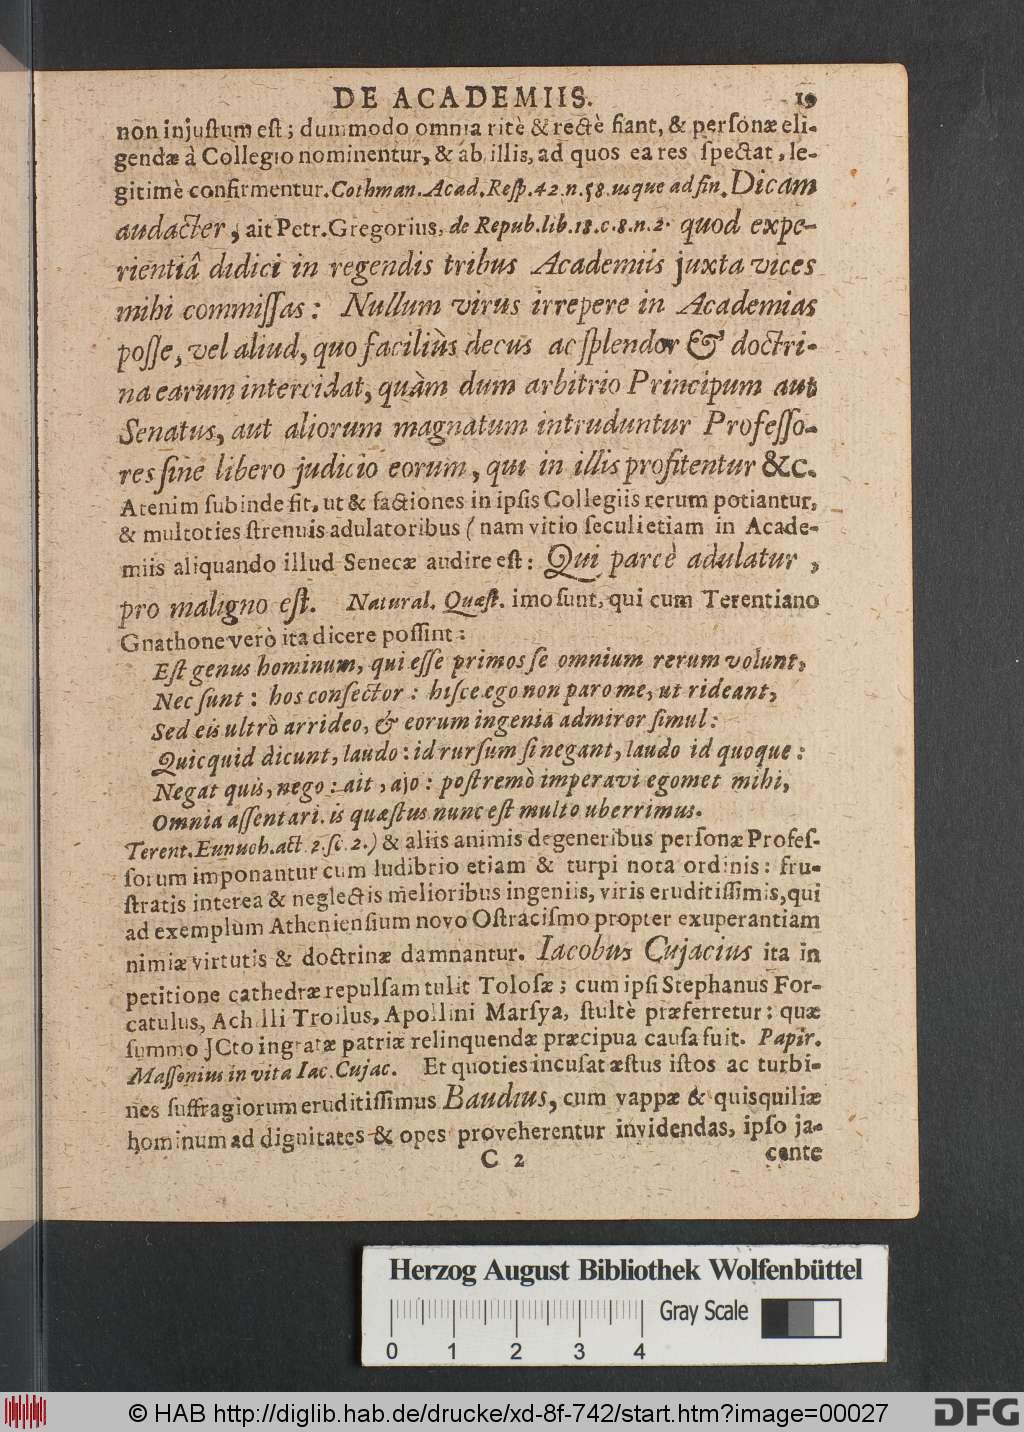 DE ACADEMIIS. 19
non injuſtum eſt; dummodo omnia ritè & rectè fiant, & perſonæ eli-
gendæ à Collegio nominentur, & ab illis, ad quos ea res ſpectat, le-
gitimè confirmentur. Cothman. Acad. Reſp. 42. n. 58. usque ad fin. Dicam
audacter, ait Petr. Gregorius, de Repub. lib. 18. c. 8. n. 2. quod expe-
rientiâ didici in regendis tribus Academiis juxta vices
mihi commiſſas: Nullum virus irrepere in Academias
poſſe, vel aliud, quo faciliùs decus ac ſplendor & doctri-
na earum intercidat, quàm dum arbitrio Principum aut
Senatus, aut aliorum magnatum intruduntur Profeſſo-
res ſine libero judicio eorum, qui in illis profitentur &c.
Atenim ſubinde fit, ut & factiones in ipſis Collegiis rerum potiantur,
& multoties ſtrenuis adulatoribus (nam vitio ſeculi etiam in Acade-
miis aliquando illud Senecæ audire eſt: Qui parcè adulatur,
pro maligno eſt. Natural. Quæſt. imo ſunt, qui cum Terentiano
Gnathone verò ita dicere poſſint:
Eſt genus hominum, qui eſſe primos ſe omnium rerum volunt,
Nec ſunt: hos conſector: hiſce ego non paro me, ut rideant,
Sed eis ultrò arrideo, & eorum ingenia admiror ſimul:
Quicquid dicunt, laudo: id rurſum ſi negant, laudo id quoque:
Negat quis, nego: ait, ajo: poſtremò imperavi egomet mihi,
Omnia aſſentari. is quæſtus nunc eſt multo uberrimus.
Terent. Eunuch. act. 2. ſc. 2.) & aliis animis degeneribus perſonæ Profeſ-
ſorum imponantur cum ludibrio etiam & turpi nota ordinis: fru-
ſtratis interea & neglectis melioribus ingeniis, viris eruditiſſimis, qui
ad exemplum Athenienſium novo Oſtraciſmo propter exuperantiam
nimiæ virtutis & doctrinæ damnantur. Iacobus Cujacius ita in
petitione cathedræ repulſam tulit Toloſæ; cum ipſi Stephanus For-
catulus, Achilli Troilus, Apollini Marſya, ſtultè præferretur: quæ
ſummo JCto ingratæ patriæ relinquendæ præcipua cauſa fuit. Papir.
Maſſonius in vita Iac. Cujac. Et quoties incuſat æſtus iſtos ac turbi-
nes ſuffragiorum eruditiſſimus Baudius, cum vappæ & quisquiliæ
hominum ad dignitates & opes proveherentur invidendas, ipſo ja-
C 2 cente
Herzog August Bibliothek Wolfenbüttel
Gray Scale
0 1 2 3 4
© HAB http://diglib.hab.de/drucke/xd-8f-742/start.htm?image=00027
DFG